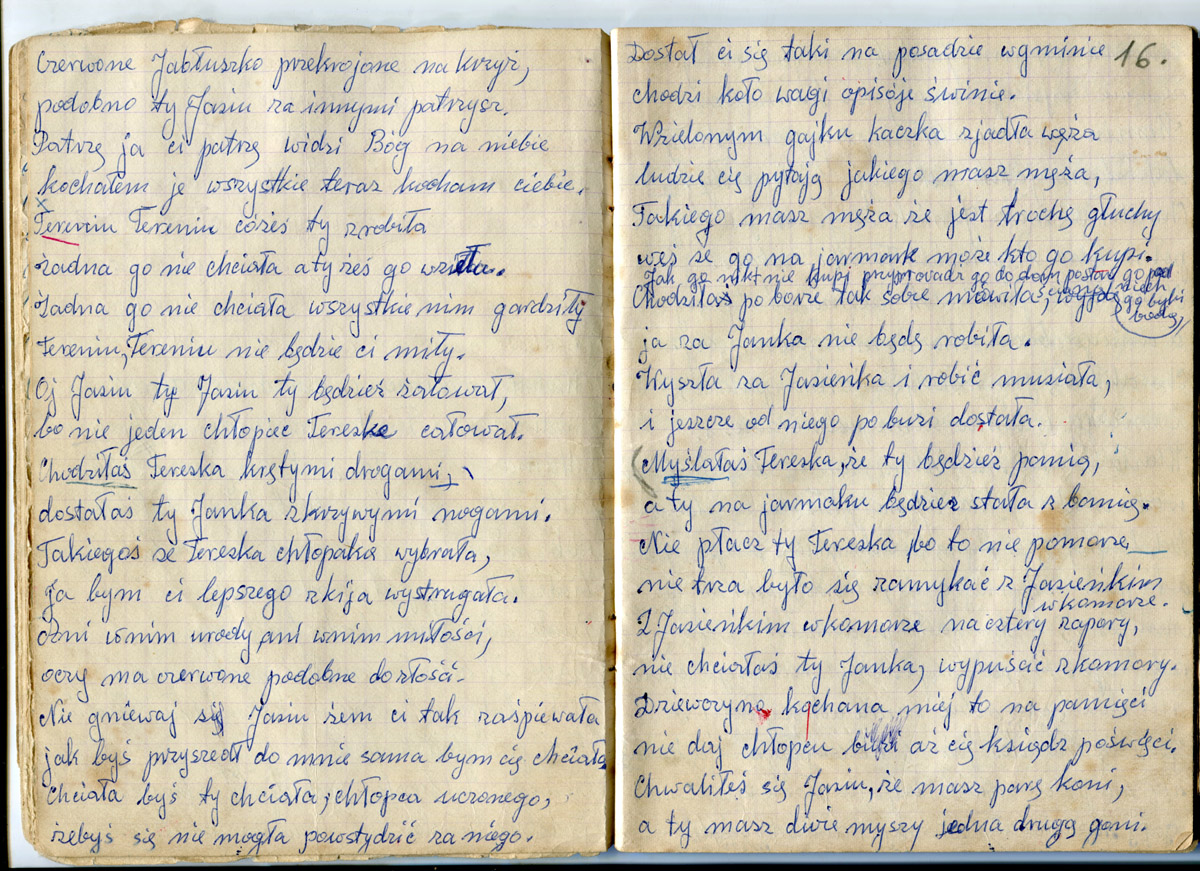 Czerwone Jabłuszko przekrojone na krzyż,
podobno ty Jasiu za innymi patrzysz.
Patrzę ja ci patrzę widzi Bóg na niebie
kochałem je wszystkie teraz kocham ciebie.
Tereniu Tereniu cóżeś ty zrobiła
żadna go nie chciała a ty żeś go wzięła.
Żadna go nie chciała wszystkie nim gardziły
Tereniu, Tereniu nie będzie ci miły.
Oj Jasiu ty Jasiu ty będzież żałował,
bo nie jeden chłopiec Tereske całował.
Chodziłaś Tereska krętymi drogami,
dostałaś ty Janka zkrzywymi nogami.
Takiegoś se Tereska chłopaka wybrała,
ja bym ci lepszego zkija wystrugała.
Ani wnim urody ani wnim miłości,
oczy ma czerwone podobne do złości.
Nie gniewaj się Jasiu żem ci tak zaśpiewała
jak byś przyszedł do mnie sama bym cię chciała
Chciała byś ty chciała, chłopca uczonego,
żebyś się nie mogła powstydzić za niego.
16.
Dostał ci się taki na posadzie wgminie
chodzi koło wagi opisóje świnie.
Wzielonym gajku kaczka zjadła węża
ludzie cię pytają jakiego masz męża,
Takiego masz męża że jest trochę głuchy
weś se go na jarmark może kto go kupi.
Jak go nikt nie kupi przyprowadź go do dom postaw go pod
Chodziłaś po borze tak sobie mówiła,
go byki bodą,
ja za Janka nie będę robiła.
Wyszła za Jasieńka i robić musiała,
i jeszcze od niego po buzi dostała.
Myślałaś Tereska, że ty będzież panią,
a ty na jarmaku będziez stała z banią.
Nie płacz ty Tereska bo to nie pomorze
nie trza było się zamykać z Jasieńkim
wkomorze.
Z Jasieńkim wkomorze na cztery zapory,
nie chciałaś ty Janka, wypuścić zkomory.
Dziewczyno kochana miej to na pamięci
nie daj chłopcu buzi aż cię ksiądz poświęci.
Chwaliłeś się Jasiu, że masz parę koni,
a ty masz dwie myszy jedna drugą goni.